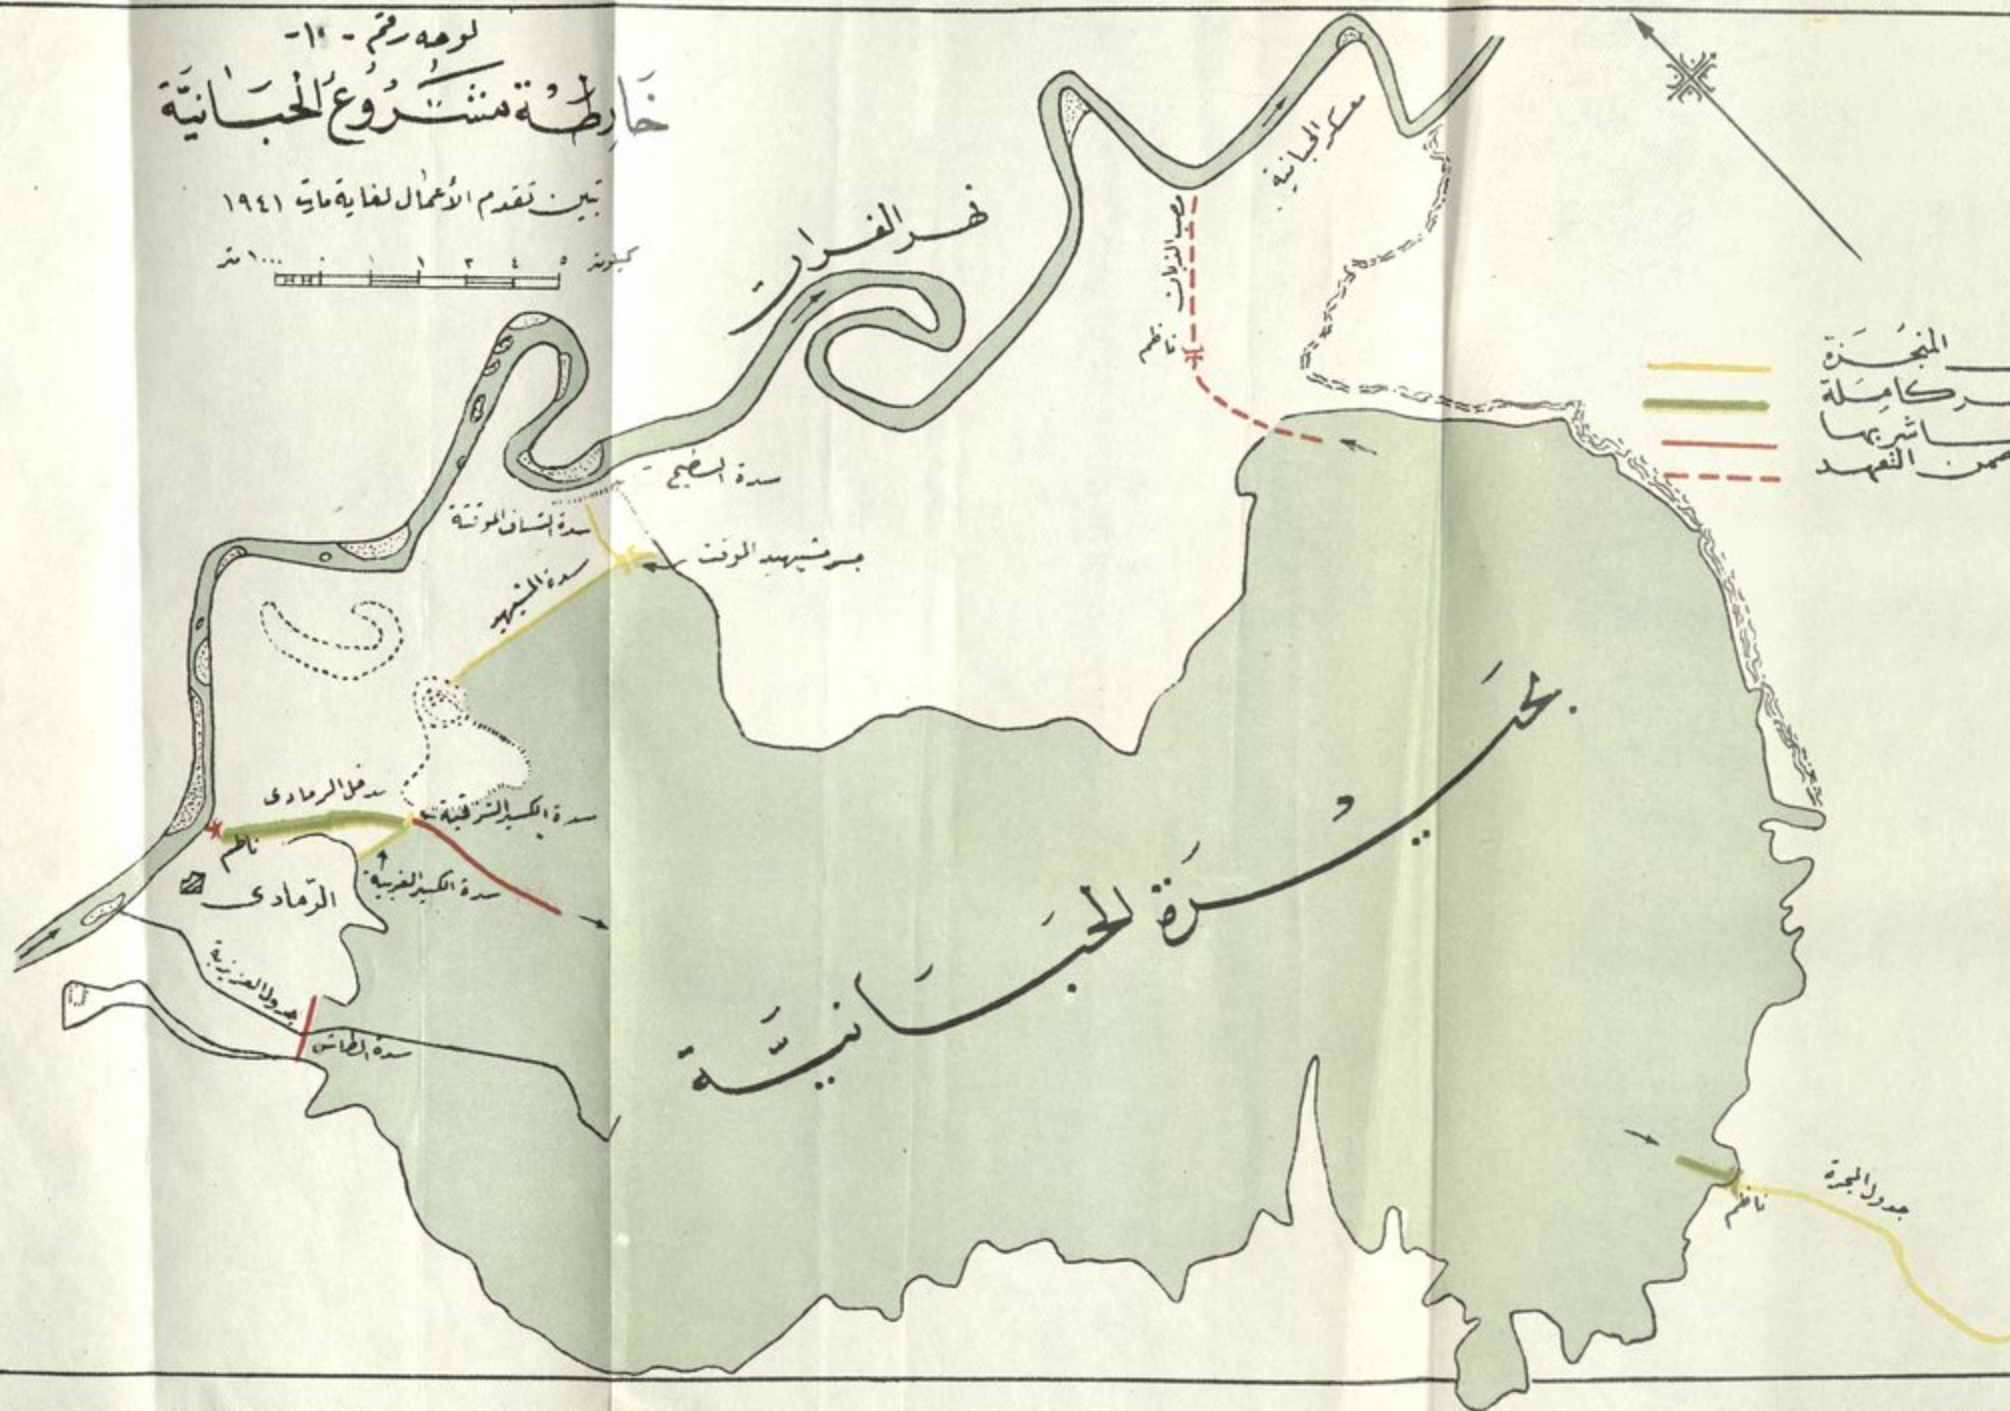 لوحه رقم - ١٠ -
خَارِطَة مَشْرُوعُ الْحَبَّانِيَّة
تبين تقدم الأعمال لغاية مايت ١٩٤١
١٠٠٠ متر ٠ ١ ٢ ٣ ٤ ٥ كيلومتر
نهر الفرات
معسكر الحبانية
مصب الذبان
ناظم
المنجَزَة
كامِلَة
باشر بها
ضمن التعهد
سدة البطيخ
سدة المؤقتة
جسر مشيهيد الموقت
سدة المشيهيد
مدخل الرمادى
سدة الكسير الشرقية
ناظم
سدة الكسير الغربية
الرّمادى
جدول العزيزية
سدة الطاش
بحَيْرَة الحَبَّانِيَّة
جدول المجرة
ناظم